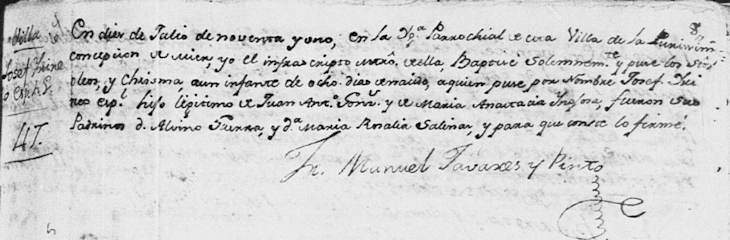 Villa
Josef Irine
o esp.l
47.
En diez de Julio de noventa y uno, en la Yg.a Parrochial de esta Villa de la Puriss.ma
concepcion de Mier yo el infraescripto Mtrô. de ella Baptise Solemnem.te y puse los Stos
oleos, y Chrisma, a un infante de ocho dias de nacido, a quien puse por Nombre Josef Iri
neo esp.l hijo legitimo de Juan Ant.o y de Maria Anastacia fueron sus
Padrinos d. Alvino Guerra, y d.a Maria Rosalia Salinas, y para que conste lo firmé.
Fr. Manuel Tavares y Pinto